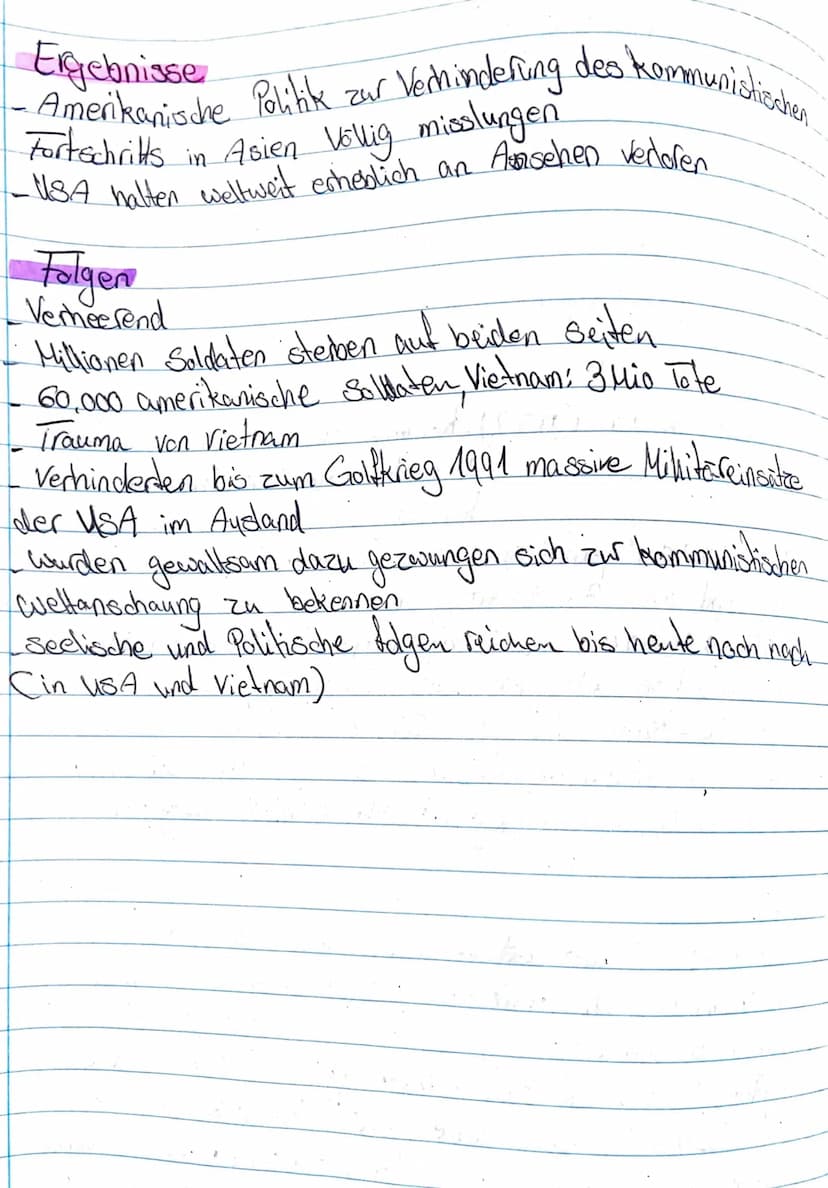 Ergebnisse
- Amerikanische Politik zur Verhinderung des kommunistischen
Fortschritts in Asien Völlig misslungen
- USA halten weltweit erheblich an Ansehen verloren
Folgen
- Verheerend
- Millionen Soldaten sterben auf beiden seiten
- 60.000 amerikanische Soldaten, Vietnam: 3 Mio Tote
- Trauma von Vietnam
- Verhinderten bis zum Golfkrieg 1991 massive Militäreinsätze
der USA im Ausland
- wurden gewaltsam dazu gezwungen sich zur kommunistischen
weltanschaung zu bekennen
- seelische und Politische folgen reichen bis heute noch nach
(in USA und Vietnam)